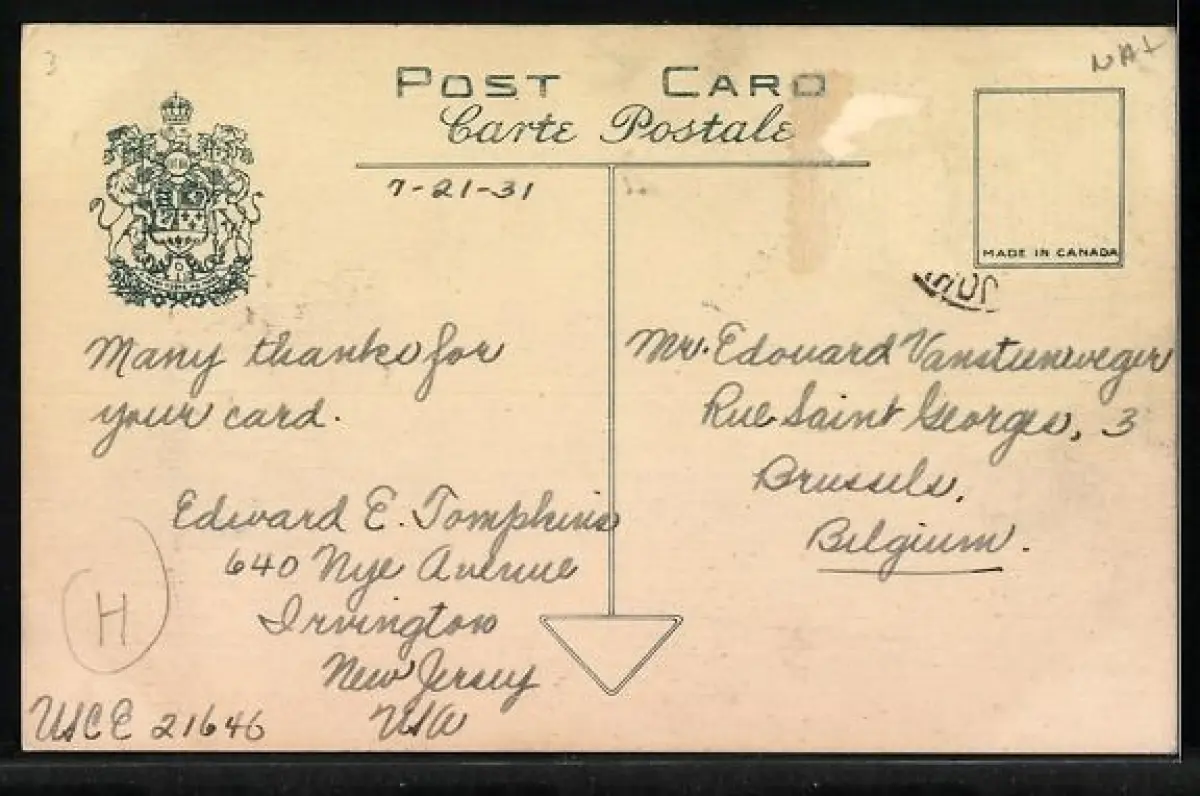 NAX
POST CARD
Carte Postale
7-21-31
MADE IN CANADA
Many thanks for
your card.
Edward E. Tompkins
640 Nye Avenue
Irvington
New Jersey
USA
H
USCE 21646
Mr. Edouard
Rue Saint Georges, 3
Brussels,
Belgium.